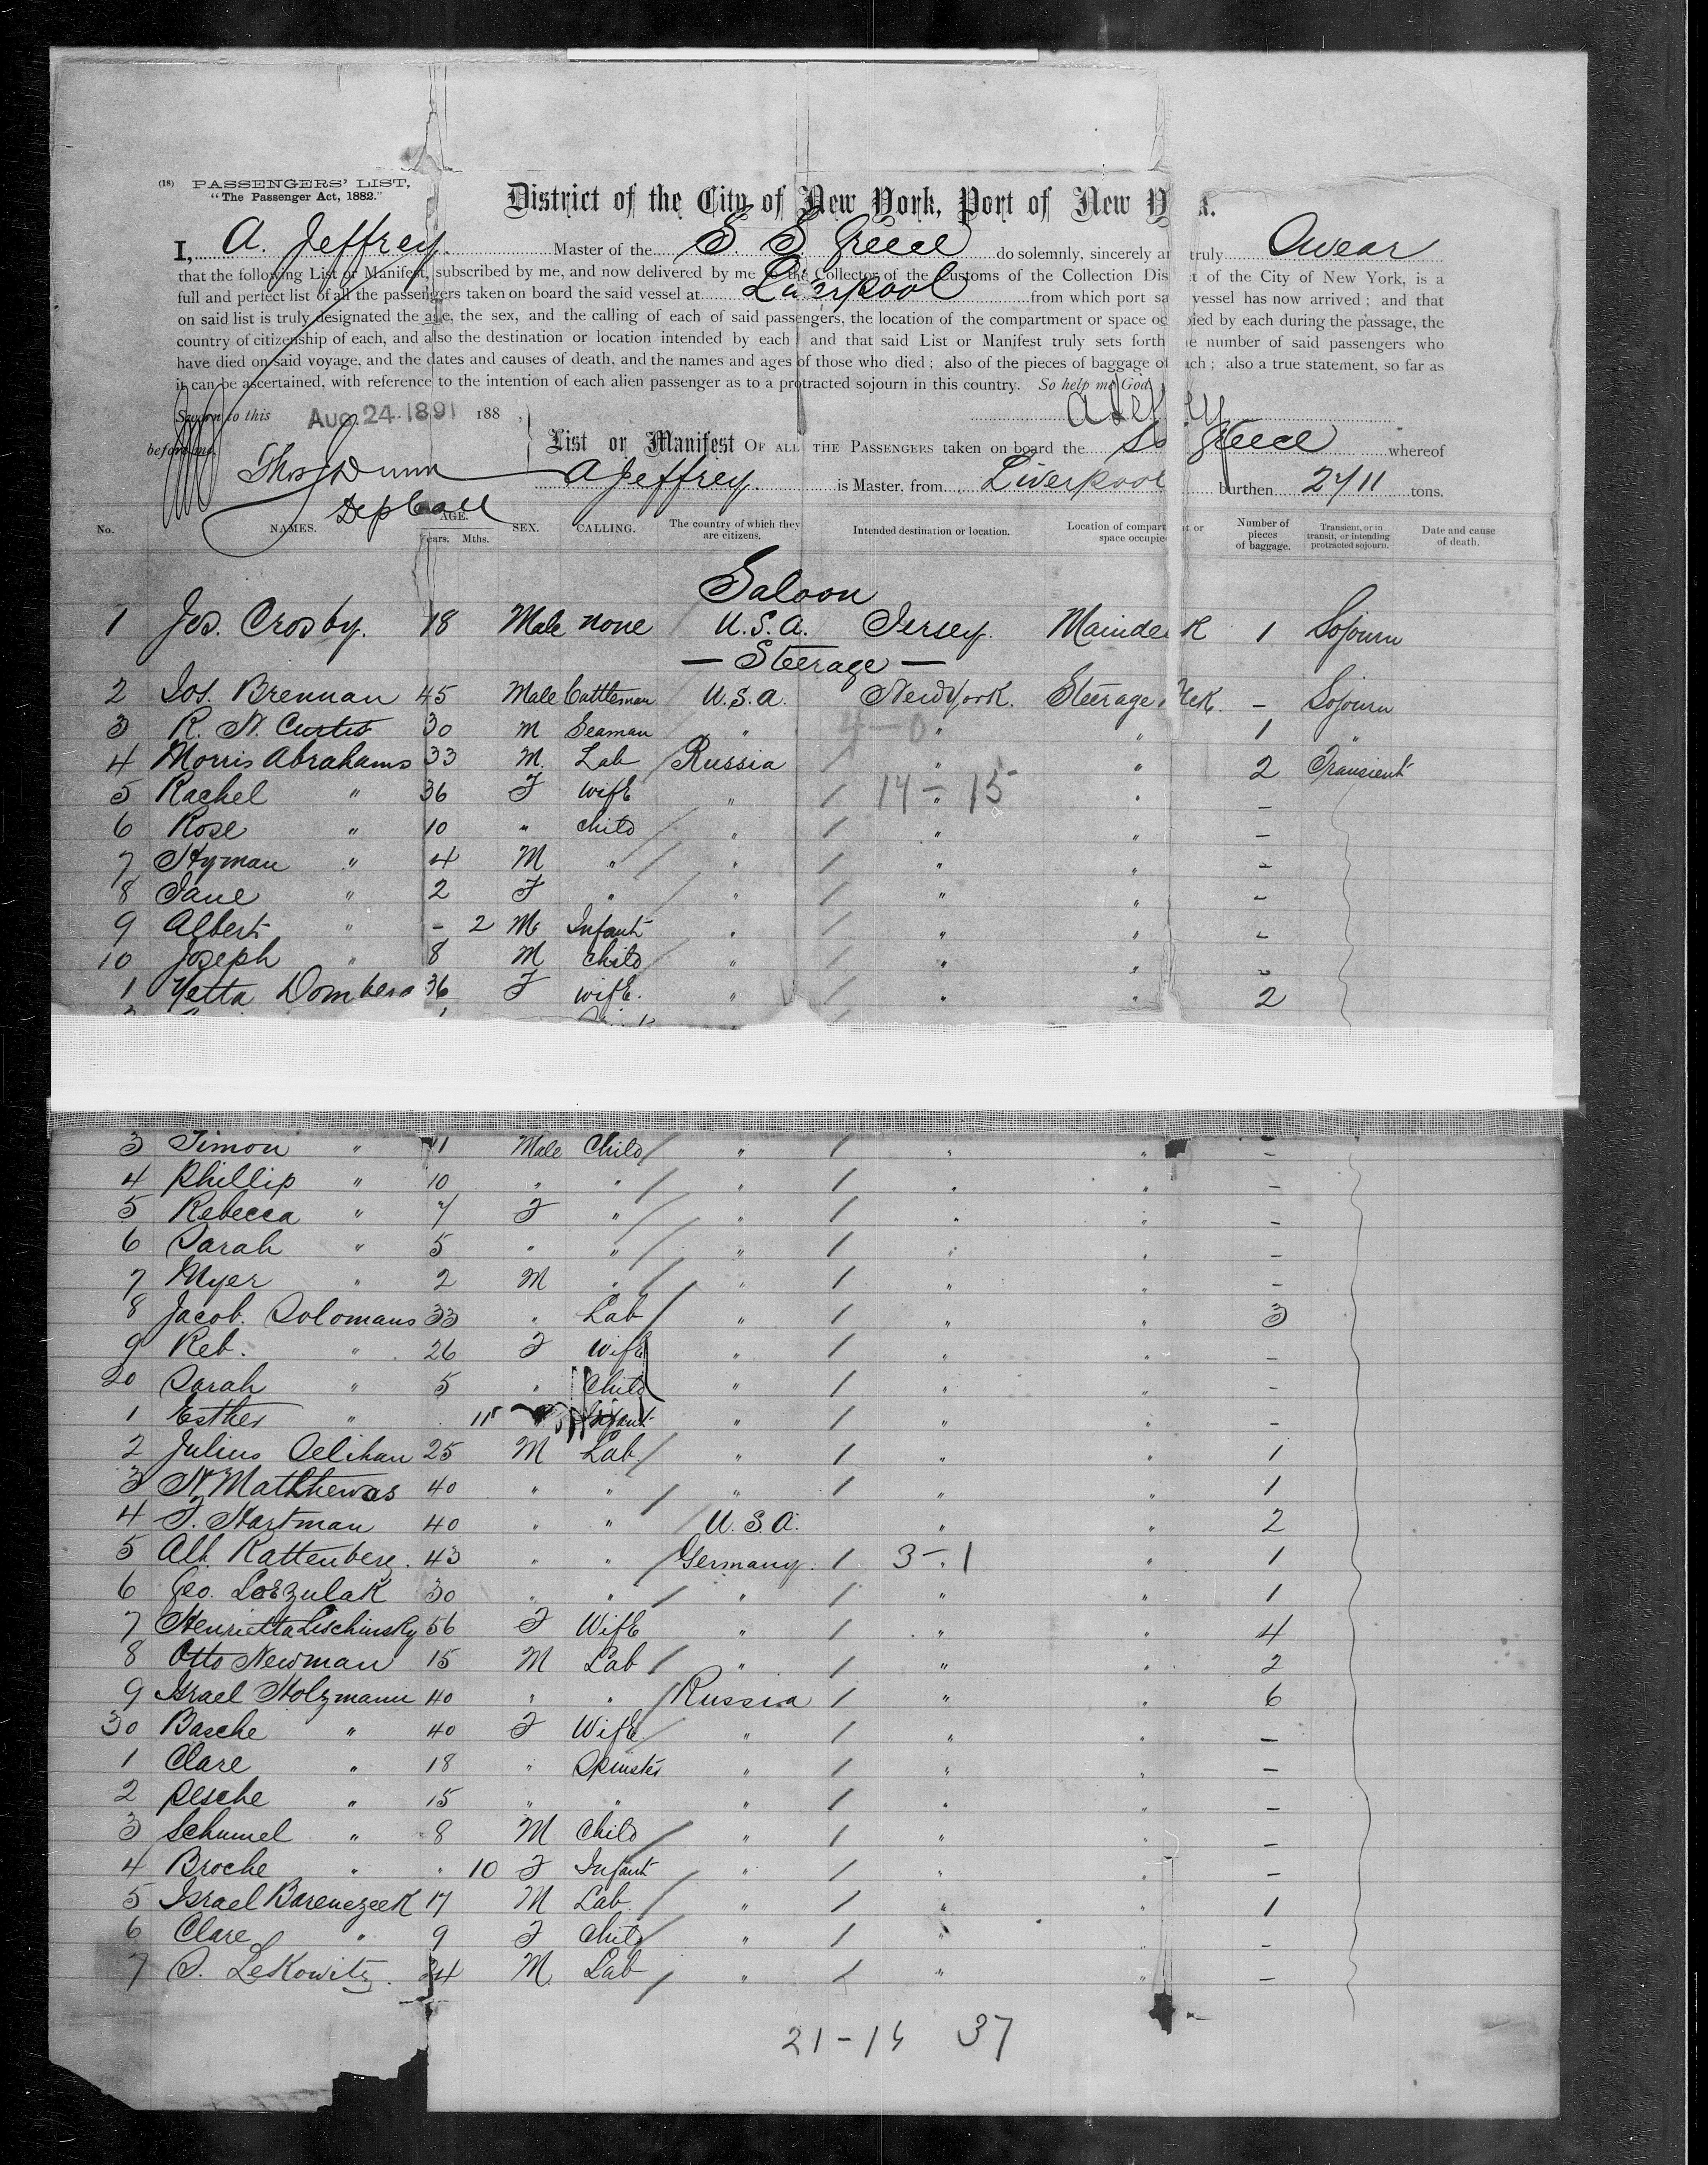 (18) PASSENGERS' LIST,
"The Passenger Act, 1882."
District of the City of New York, Port of New Y k.
I, A. Jeffrey. Master of the S. S. Greece do solemnly, sincerely an truly Swear
that the following List or Manifest, subscribed by me, and now delivered by me to the Collector of the Customs of the Collection Dis t of the City of New York, is a
full and perfect list of all the passengers taken on board the said vessel at Liverpool from which port sa vessel has now arrived; and that
on said list is truly designated the age, the sex, and the calling of each of said passengers, the location of the compartment or space oc pied by each during the passage, the
country of citizenship of each, and also the destination or location intended by each; and that said List or Manifest truly sets forth e number of said passengers who
have died on said voyage, and the dates and causes of death, and the names and ages of those who died; also of the pieces of baggage of ach; also a true statement, so far as
it can be ascertained, with reference to the intention of each alien passenger as to a protracted sojourn in this country. So help me God
Sworn to this AUG. 24. 1891 188 A Jef ey
before me. List or Manifest OF ALL THE PASSENGERS taken on board the SS Greece whereof
Thos J Dunn A Jeffrey. is Master, from Liverpool burthen 2711 tons.
Dep Coll
No. NAMES. AGE. Years. Mths. SEX. CALLING. The country of which they are citizens. Intended destination or location. Location of compart nt or space occupie Number of pieces of baggage. Transient, or in transit, or intending protracted sojourn. Date and cause of death.
Saloon
1 Jas. Crosby. 18 Male None U.S.A. Jersey. Maindeck 1 Sojourn
— Steerage —
2 Jos. Brennan 45 Male Cattleman / U.S.A. New York. Steerage Dek. - Sojourn
3 R. N. Curtis 30 M Seaman " 4-0 " " 1 "
4 Morris Abrahams 33 M. Lab / Russia / " " 2 Transient
5 Rachel " 36 F Wife " / 14-15 " -
6 Rose " 10 " Child / " / " " -
7 Hyman " 4 M " / " / " " -
8 Jane " 2 F " / " / " " -
9 Albert " - 2 M Infant " / " " -
10 Joseph " 8 M Child / " / " " -
1 Yetta Domberg 36 F Wife. " / " " 2
3 Simon " 11 Male Child / " / " " -
4 Phillip " 10 " " / " / " " -
5 Rebecca " 7 F " / " / " " -
6 Sarah " 5 " " / " / " " -
7 Myer " 2 M " / " / " " -
8 Jacob. Solomans 33 " Lab / " / " " 3
9 Reb. " 26 F Wife " / " " -
20 Sarah " 5 " Child " / " " -
1 Esther " 11 Infant " / " " -
2 Julius Selikan 25 M Lab / " / " " 1
3 N. Matthewos 40 " " / " / " " 1
4 F. Hartman 40 " " / U.S.A. " " 2
5 Alb. Rattenberg. 43 " " / Germany. / 3-1 " 1
6 Geo. Loezulak 30 " " / " / " " 1
7 Henrietta Lischinsky 56 F Wife " / " " 4
8 Otto Newman 15 M Lab / " / " " 2
9 Israel Holzmann 40 " " / Russia / " " 6
30 Basche " 40 F Wife / " / " " -
1 Clare " 18 " Spinster " / " " -
2 Pesche " 15 " " " / " " -
3 Schumel " 8 M Child / " / " " -
4 Broche " " 10 F Infant " / " " -
5 Israel Barenezeek 17 M Lab. / " / " " 1
6 Clare " 9 F Child / " / " " -
7 S. Lekowitz. 24 M. Lab / " / " " -
21-14 37